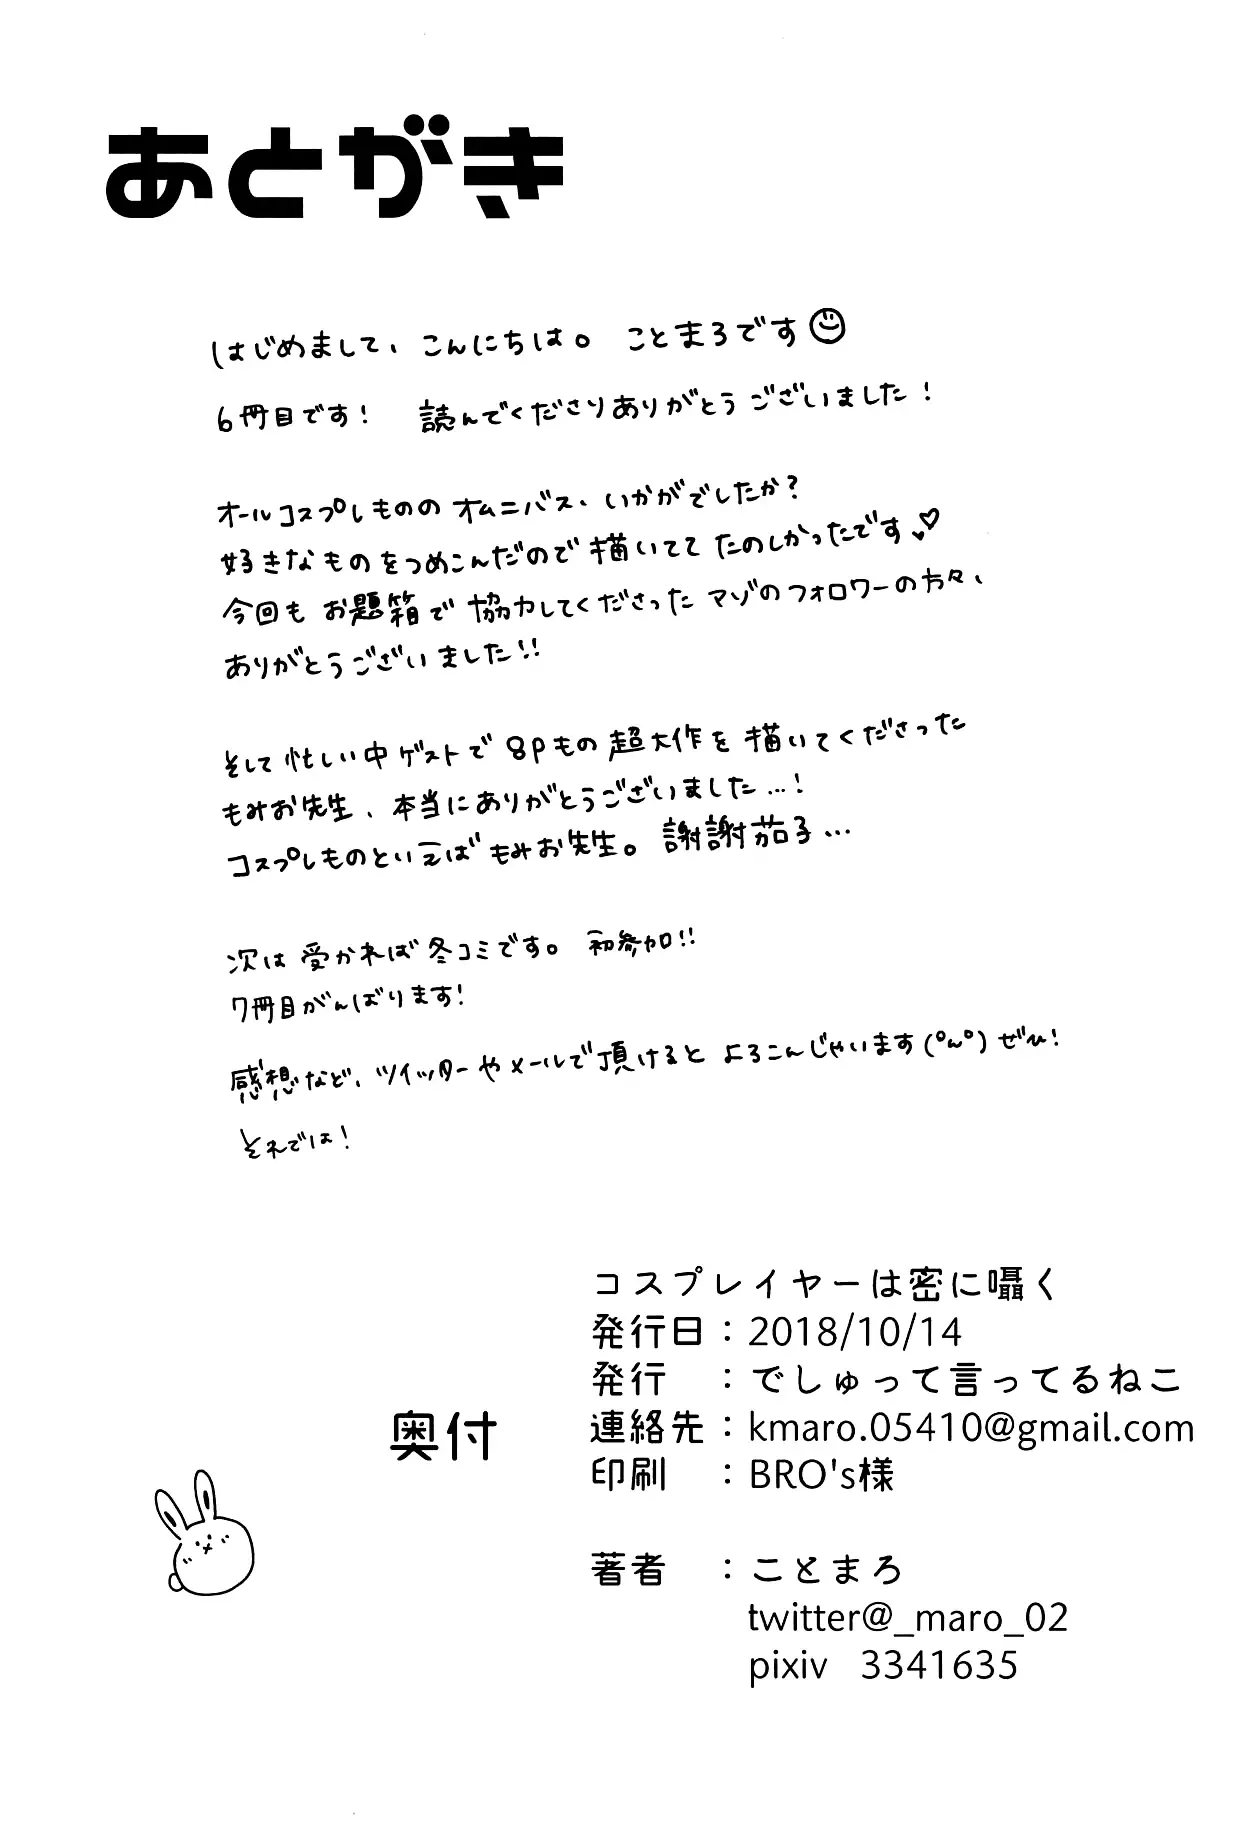 あとがき
はじめまして、こんにちは。 ことまろです
6冊目です! 読んでくださりありがとうございました!
オールコスプレもののオムニバス、いかがでしたか?
好きなものをつめこんだので描いてて たのしかったです
今回も お題箱で 協力してくださった マゾのフォロワーの方々、
ありがとうございました!!
そして忙しい中ゲストで 8pもの 超大作を 描いてくださった
もみお先生、本当にありがとうございました…!
コスプレものといえば もみお先生。謝謝茄子…
次は 受かれば冬コミです。 初参加!!
7冊目がんばります!
感想など、ツイッターやメールで頂けると よろこんじゃいます(°ω°)ぜひ!
それでは!
コスプレイヤーは密に囁く
発行日:2018/10/14
発行 :でしゅって言ってるねこ
奥付
連絡先:kmaro.05410@gmail.com
印刷 :BRO's様
著者 :ことまろ
twitter@_maro_02
pixiv 3341635